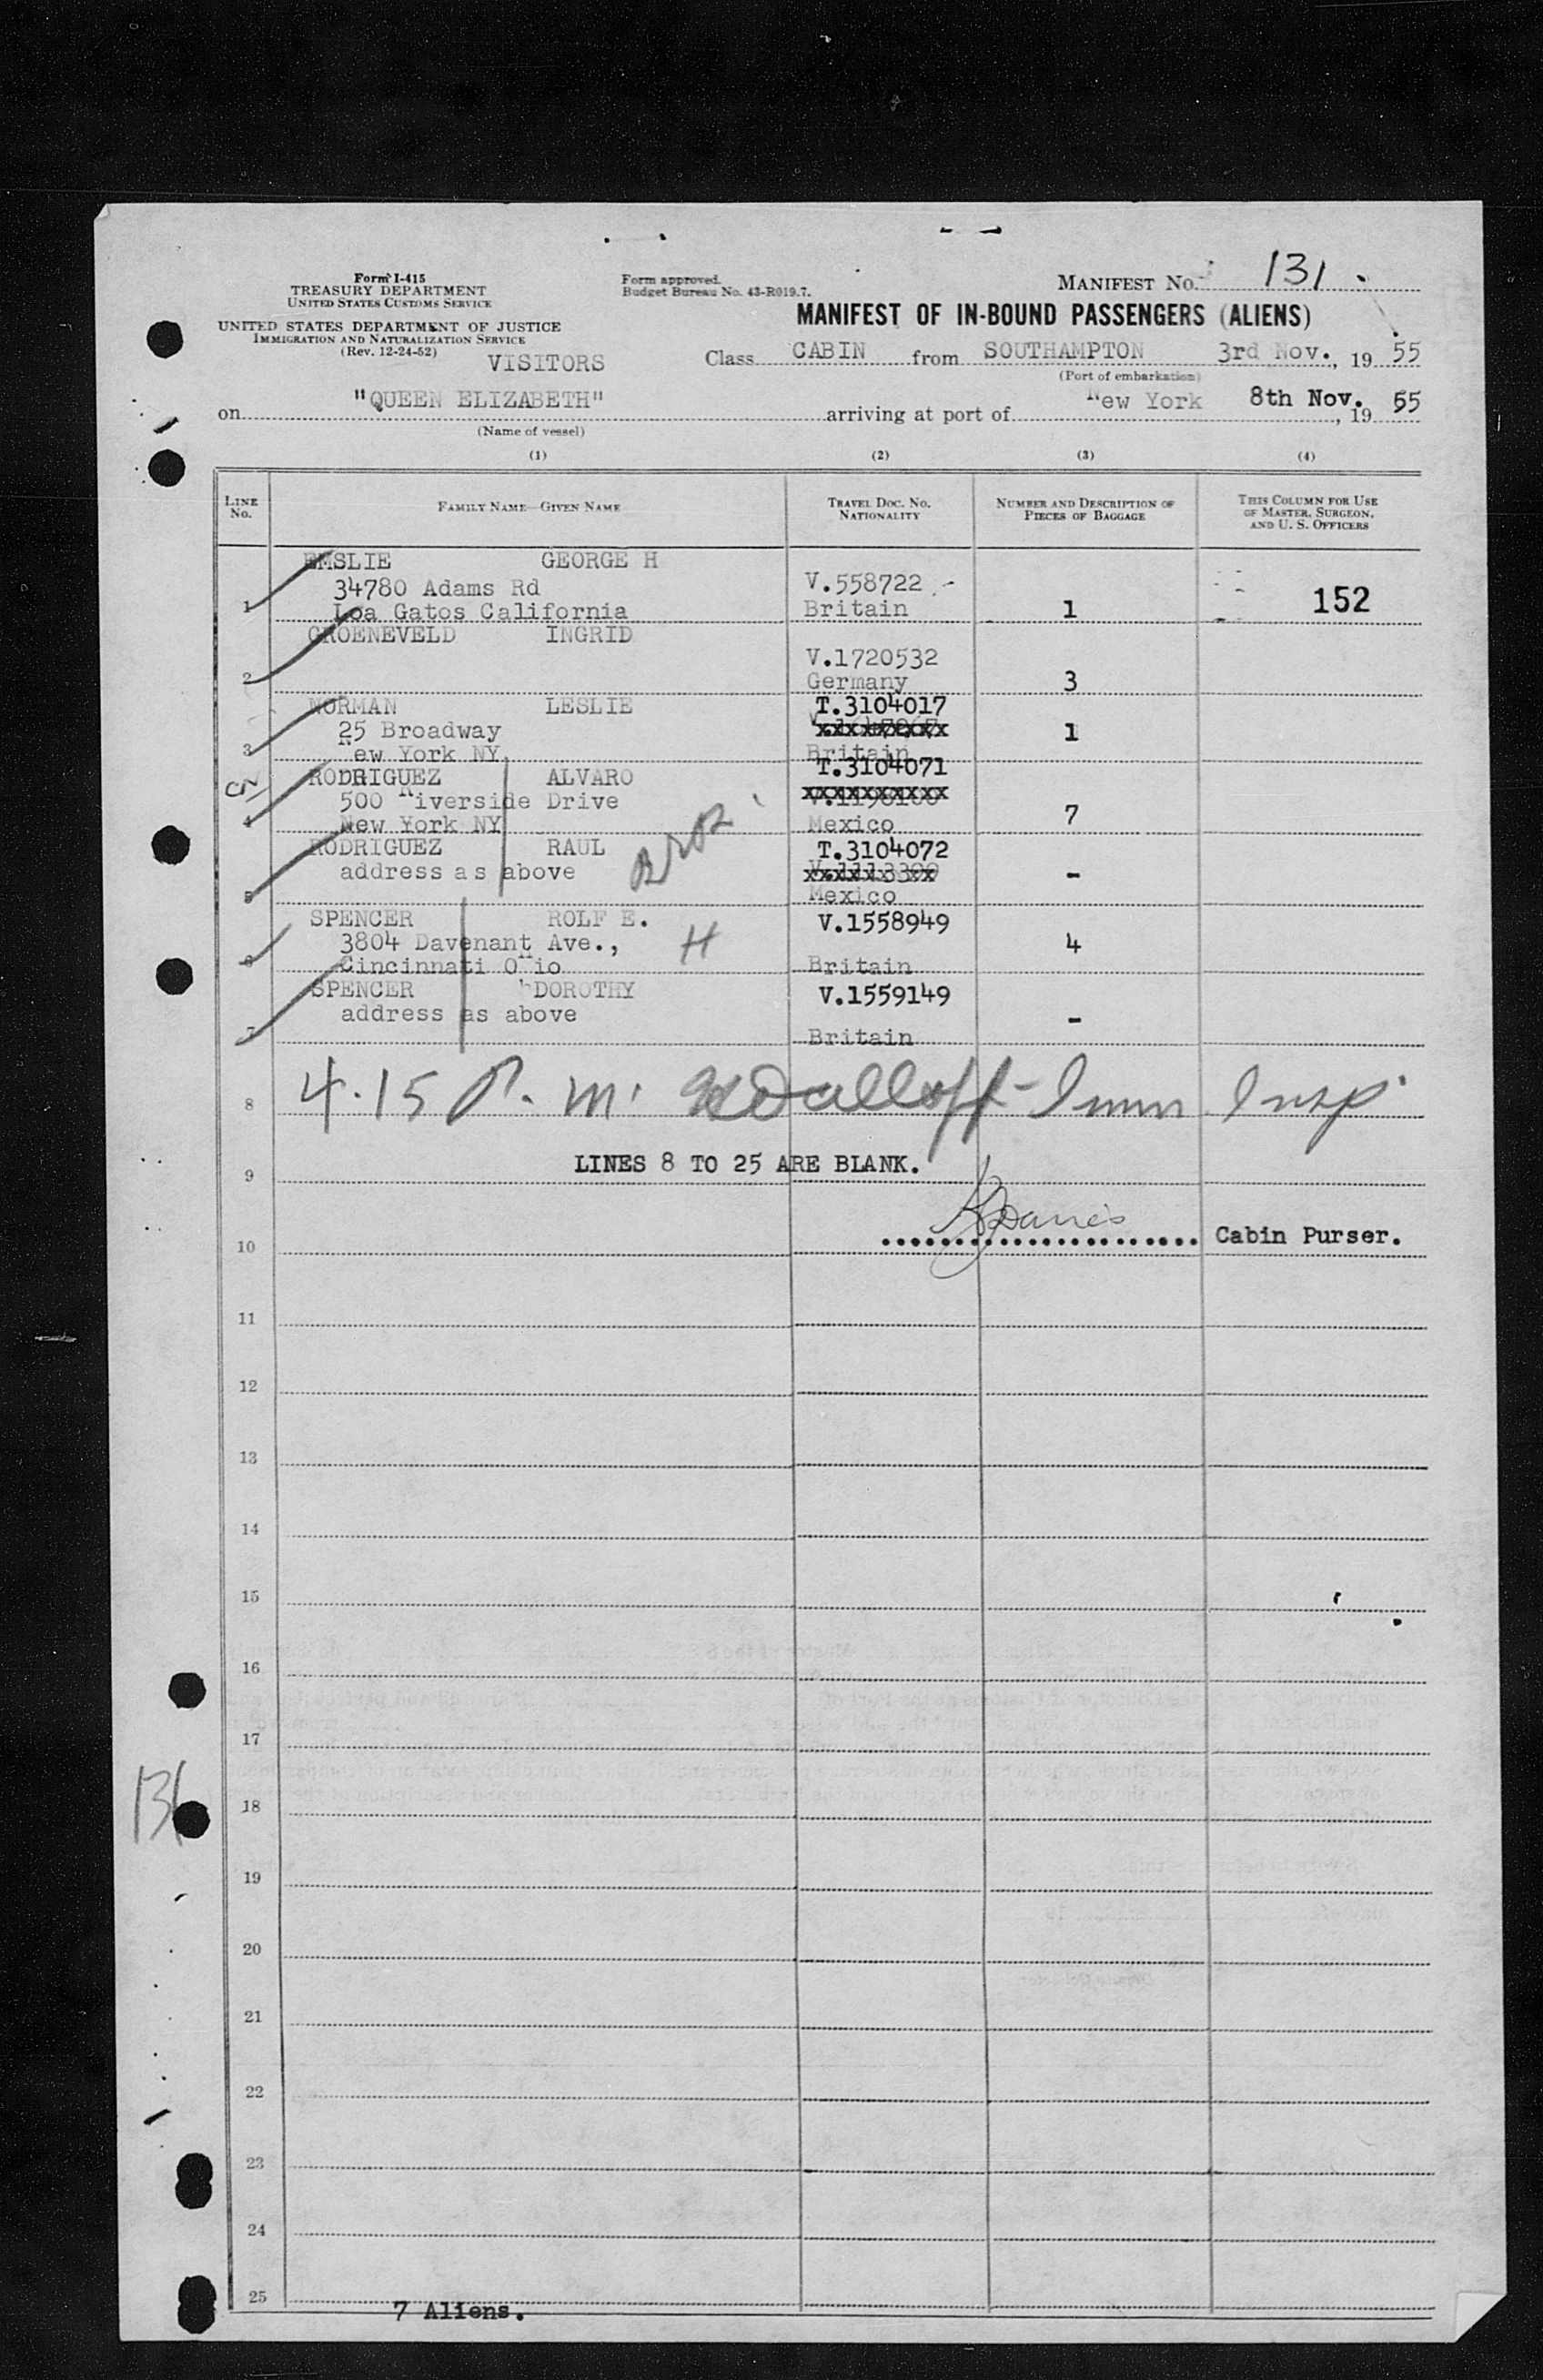 Form I-415
TREASURY DEPARTMENT
UNITED STATES CUSTOMS SERVICE
UNITED STATES DEPARTMENT OF JUSTICE
IMMIGRATION AND NATURALIZATION SERVICE
(Rev. 12-24-52)
VISITORS
Form approved.
Budget Bureau No. 43-R019.7.
MANIFEST No. 131
MANIFEST OF IN-BOUND PASSENGERS (ALIENS)
Class CABIN from SOUTHAMPTON 3rd Nov., 19 55
(Port of embarkation)
on "QUEEN ELIZABETH" arriving at port of New York 8th Nov., 19 55
(Name of vessel)
(1) (2) (3) (4)
LINE No. FAMILY NAME—GIVEN NAME TRAVEL DOC. NO. NATIONALITY NUMBER AND DESCRIPTION OF PIECES OF BAGGAGE THIS COLUMN FOR USE OF MASTER, SURGEON, AND U. S. OFFICERS
EMSLIE GEORGE H
34780 Adams Rd V.558722 -
1 Loa Gatos California Britain 1 152
GROENEVELD INGRID
V.1720532
2 Germany 3
NORMAN LESLIE T.3104017
25 Broadway xxxxxxxxx 1
3 New York NY Britain
RODRIGUEZ ALVARO T.3104071
500 Riverside Drive xxxxxxxxxx
4 New York NY Mexico 7
RODRIGUEZ RAUL T.3104072
address as above Bros. -
5 Mexico
SPENCER ROLF E. V.1558949
3804 Davenant Ave., H 4
6 Cincinnati Ohio Britain
SPENCER DOROTHY V.1559149
address as above -
7 Britain
8 4.15 P.m. Imm Insp.
LINES 8 TO 25 ARE BLANK.
9
Davies
10 Cabin Purser.
11
12
13
14
15
16
17
131
18
19
20
21
22
23
24
25
7 Aliens.